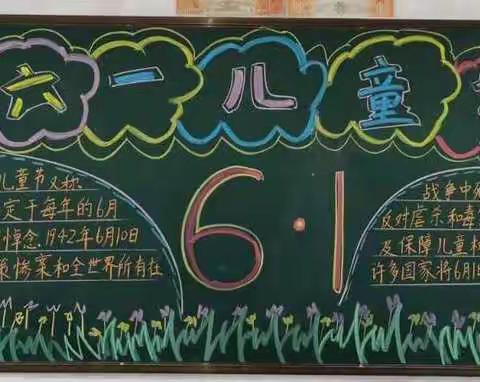 六一儿童
儿童节又称
定于每年的6月
悼念1942年6月10日
惨案和全世界所有在
6·1
战争中死
反对虐杀和毒
及保障儿童权
许多国家将6月1